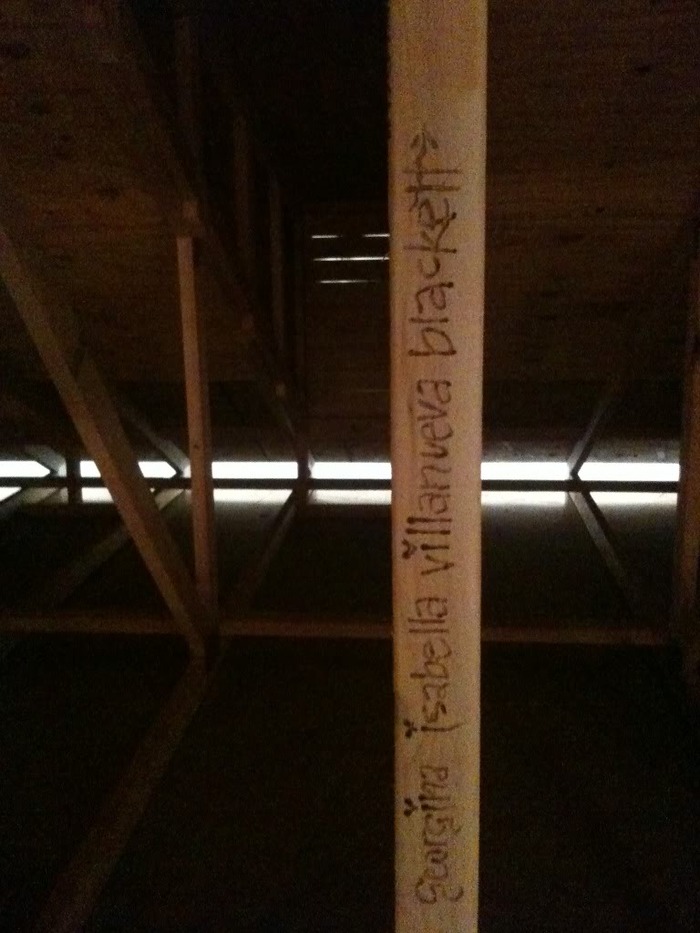 georgina isabella villanueva blackett